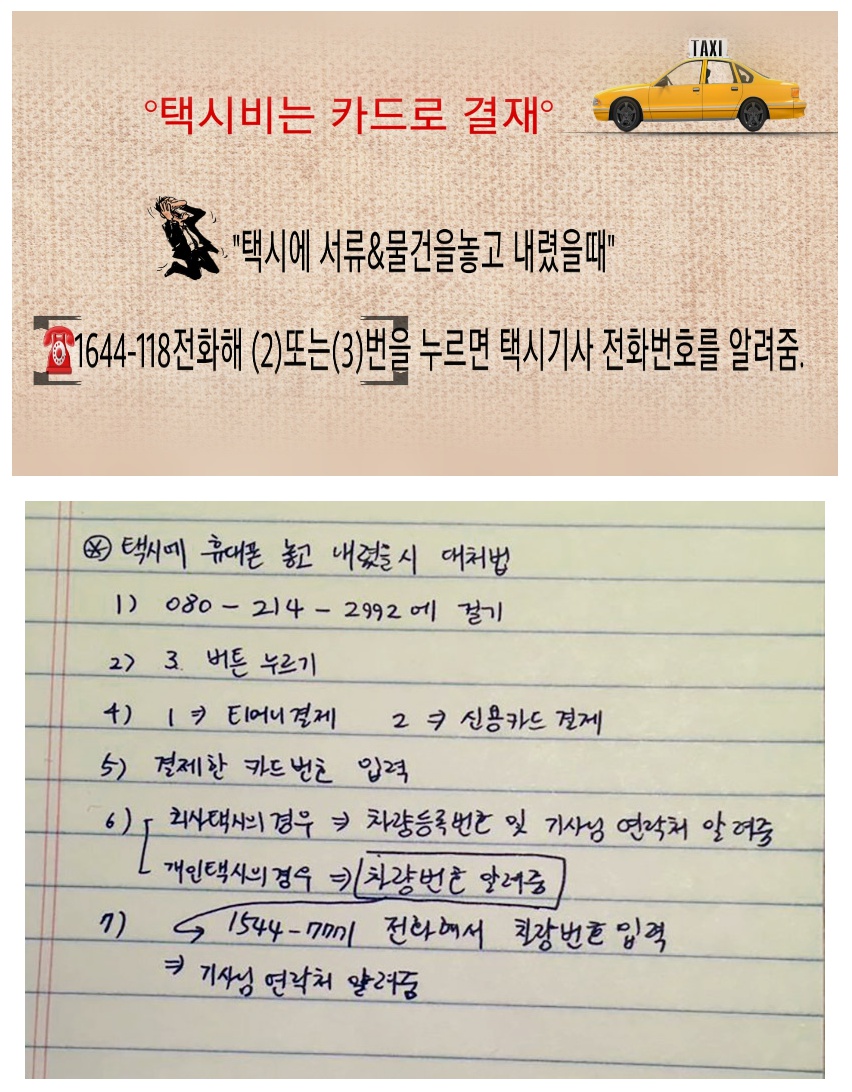 TAXI
°택시비는 카드로 결재°
"택시에 서류&물건을놓고 내렸을때"
☎1644-118전화해 (2)또는(3)번을 누르면 택시기사 전화번호를 알려줌.
※ 택시에 휴대폰 놓고 내렸을시 대처법
1) 080 - 214 - 2992에 걸기
2) 3 버튼 누르기
4) 1 ⇒ 티머니결제 2 ⇒ 신용카드 결제
5) 결제한 카드번호 입력
6) 회사택시의 경우 ⇒ 차량등록번호 및 기사님 연락처 알려줌
개인택시의 경우 ⇒ 차량번호 알려줌
7) 1544-7771 전화해서 차량번호 입력
⇒ 기사님 연락처 알려줌